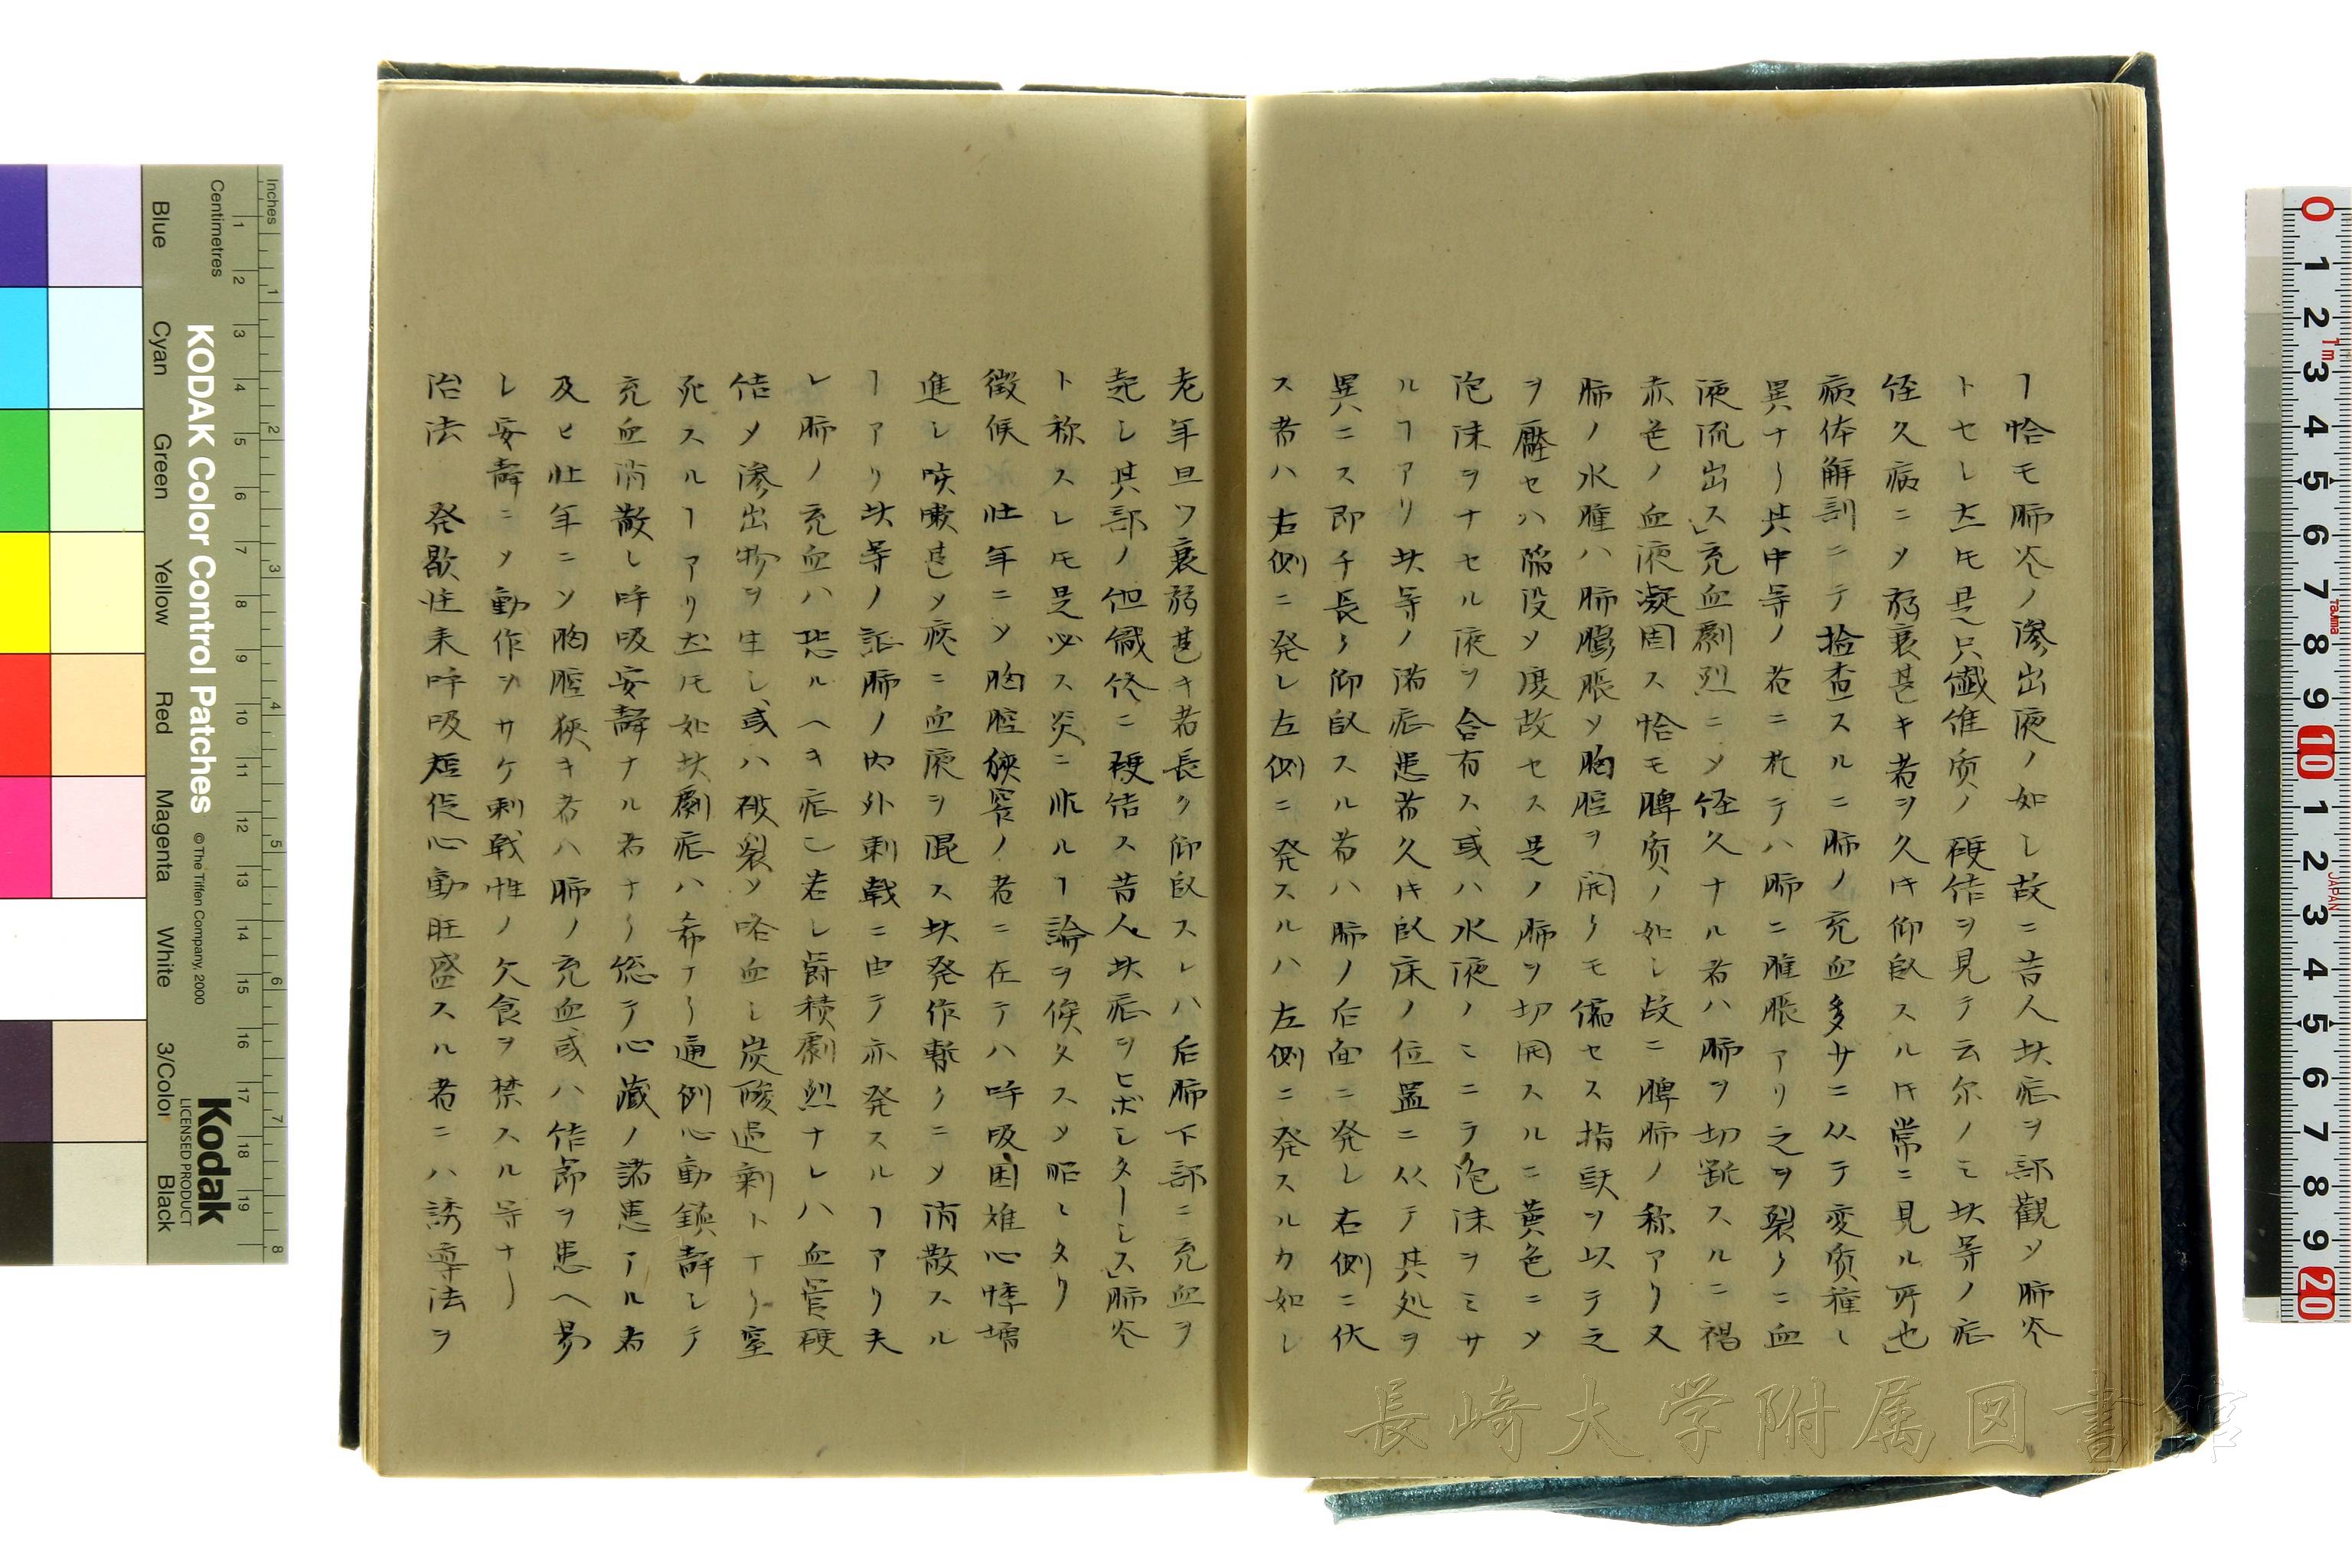 ヿ恰モ肺炎ノ滲出液ノ如シ故ニ昔人此症ヲ誤観ソ肺炎
トセシ𪜈是只繊維质ノ硬结ヲ見テ云尓ノミ此等ノ症
経久病ニソ弱衰甚キ者ヲ久ク仰臥スル寸常ニ見ル所也」
病体解剖ニテ撿査スルニ肺ノ充血多サニ从テ変质種し
異ナリ其中等ノ者ニ在テハ肺ニ腫脹アリ之ヲ裂クニ血
液流出ス」充血劇烈ニソ経久ナル者ハ肺ヲ切断スルニ褐
赤色ノ血液凝固ス恰モ脾质ノ如シ故ニ脾肺ノ称アリ又
肺ノ水腫ハ肺膨脹ソ胸腔ヲ開クモ縮セス指頭ヲ以テ之
ヲ壓セハ陥没ソ復故セス是ノ肺ヲ切開スルニ黄色ニソ
泡沫ヲナセル液ヲ含有ス或ハ水液ノミニテ泡沫ヲミサ
ルヿアリ此等ノ諸症患者久ク臥床ノ位置ニ从テ其処ヲ
異ニス即チ長ク仰臥スル者ハ肺ノ后面ニ発シ右側ニ伏
ス者ハ右側ニ発シ左側ニ発スルハ左側ニ発スルカ如シ
老年且ツ衰弱甚キ者長ク仰臥スレハ后肺下部ニ充血ヲ
起シ其部ノ組織終ニ硬结ス昔人此症ヲヒポシターシス」肺炎
ト称スレ𪜈是必ス炎ニ非ルヿ論ヲ俟タスソ昭シタリ
徴候 壮年ニソ胸腔狭窄ノ者ニ在テハ呼吸困难心悸増
進シ咳嗽甚ソ痰ニ血液ヲ混ス此発作暫クニソ消散スル
ヿアリ此等ノ証肺ノ内外刺戟ニ由テ亦発スルヿアリ夫
レ肺ノ充血ハ恐ルヘキ症ニ若シ欝積劇烈ナレハ血管硬
结ソ滲出物ヲ生シ或ハ破裂ソ咯血シ炭酸過剰トナリ窒
死スルヿアリ𪜈如此劇症ハ希ナリ通例心動鎮静シテ
充血消散し呼吸安静ナル者ナリ総テ心蔵ノ諸患アル者
及ヒ壮年ニソ胸腔狭キ者ハ肺ノ充血或ハ结節ヲ患ヘ易
レ安静ニソ動作ヲサケ刺戟性ノ欠食ヲ禁スル等ナリ
治法 発歇性来呼吸短促心動旺盛スル者ニハ誘導法ヲ
Inches
Centimetres
KODAK Color Control Patches
© The Tiffen Company, 2000
Kodak
LICENSED PRODUCT
Blue
Cyan
Green
Yellow
Red
Magenta
White
3/Color
Black
1 2 3 4 5 6 7 8 9 10 11 12 13 14 15 16 17 18 19
1 2 3 4 5 6 7 8
0 1 2 3 4 5 6 7 8 9 10 1 2 3 4 5 6 7 8 9 20
1m
TAJIMA
JAPAN
長崎大学附属図書館